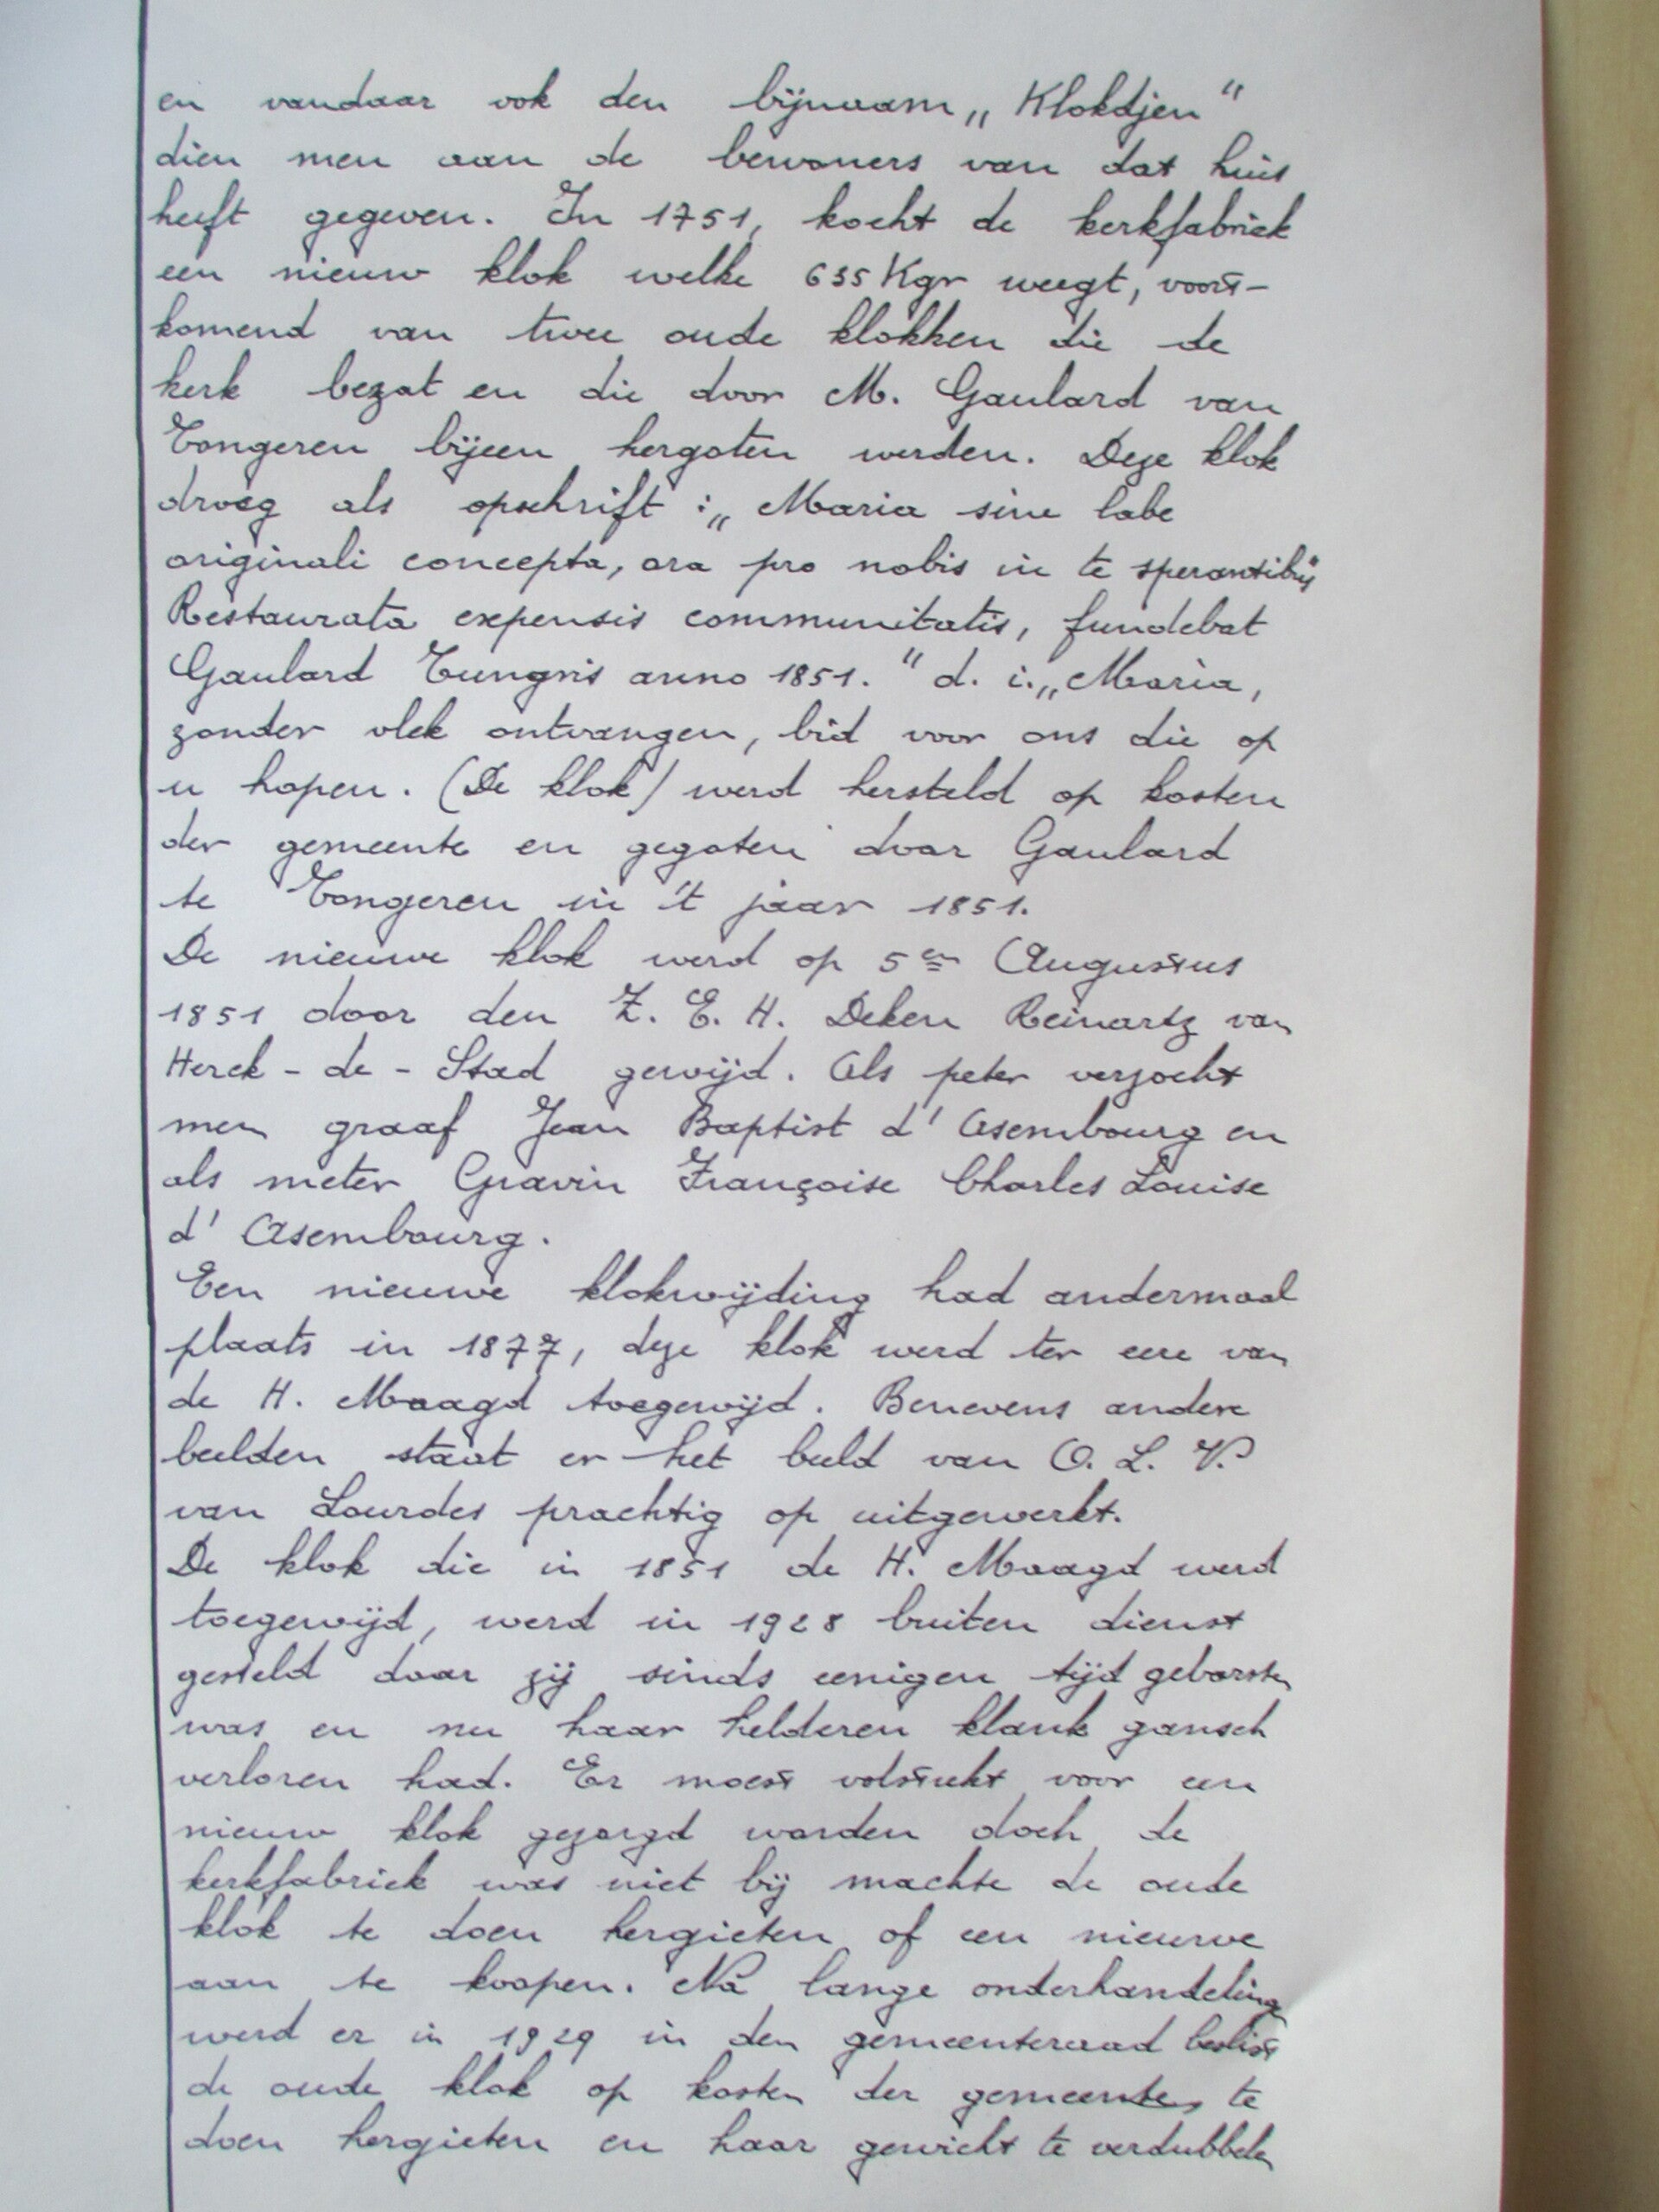 en vandaar ook den bijnaam „Klokdjen"
dien men aan de bewoners van dat huis
heeft gegeven. In 1751, kocht de kerkfabriek
een nieuw klok welke 635 Kgr weegt, voort-
komend van twee oude klokken die de
kerk bezat en die door M. Gaulard van
Tongeren bijeen hergoten werden. Deze klok
droeg als opschrift : „Maria sine labe
originali concepta, ora pro nobis in te sperantibus
Restaurata expensis communitatis, fundebat
Gaulard Tungris anno 1851." d. i. „Maria,
zonder vlek ontvangen, bid voor ons die op
u hopen. (De klok) werd hersteld op kosten
der gemeente en gegoten door Gaulard
te Tongeren in 't jaar 1851.
De nieuwe klok werd op 5en Augustus
1851 door den Z. E. H. Deken Reinartz van
Herck-de-Stad gewijd. Als peter verzocht
men graaf Jean Baptist d'Asembourg en
als meter Gravin Françoise Charles Louise
d'Asembourg.
Een nieuwe klokwijding had andermaal
plaats in 1877, deze klok werd ter eere van
de H. Maagd toegewijd. Benevens andere
beelden staat er het beeld van O. L. V.
van Lourdes prachtig op uitgewerkt.
De klok die in 1851 de H. Maagd werd
toegewijd, werd in 1928 buiten dienst
gesteld daar zij sinds eenigen tijd geborsten
was en nu haar helderen klank gansch
verloren had. Er moest volstrekt voor een
nieuw klok gezorgd worden doch de
kerkfabriek was niet bij machte de oude
klok te doen hergieten of een nieuwe
aan te koopen. Na lange onderhandeling
werd er in 1929 in den gemeenteraad beslist
de oude klok op kosten der gemeente te
doen hergieten en haar gewicht te verdubbelen